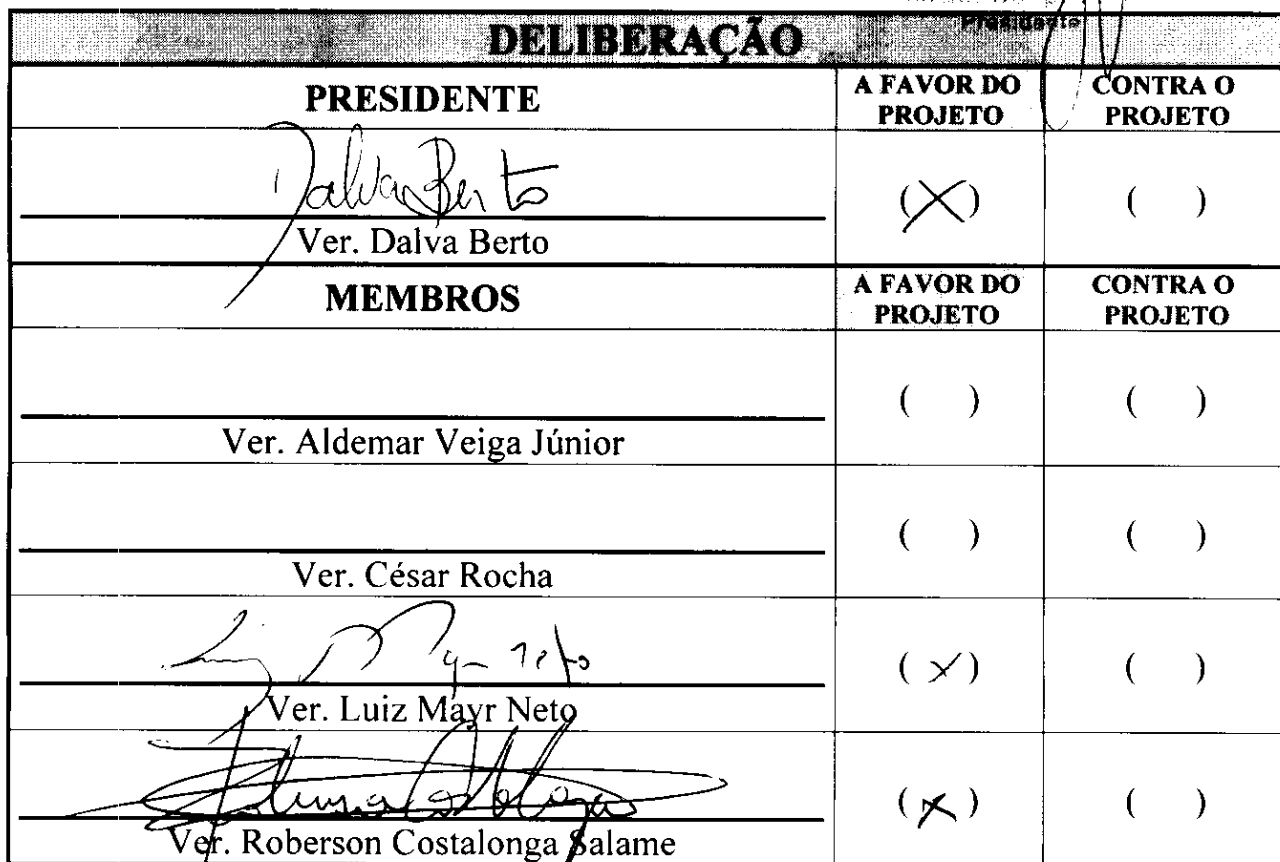 Presidente
DELIBERAÇÃO
PRESIDENTE A FAVOR DO PROJETO CONTRA O PROJETO
Dalva Berto
(X) ( )
Ver. Dalva Berto
MEMBROS A FAVOR DO PROJETO CONTRA O PROJETO
( ) ( )
Ver. Aldemar Veiga Júnior
( ) ( )
Ver. César Rocha
(X) ( )
Ver. Luiz Mayr Neto
(X) ( )
Ver. Roberson Costalonga Salame